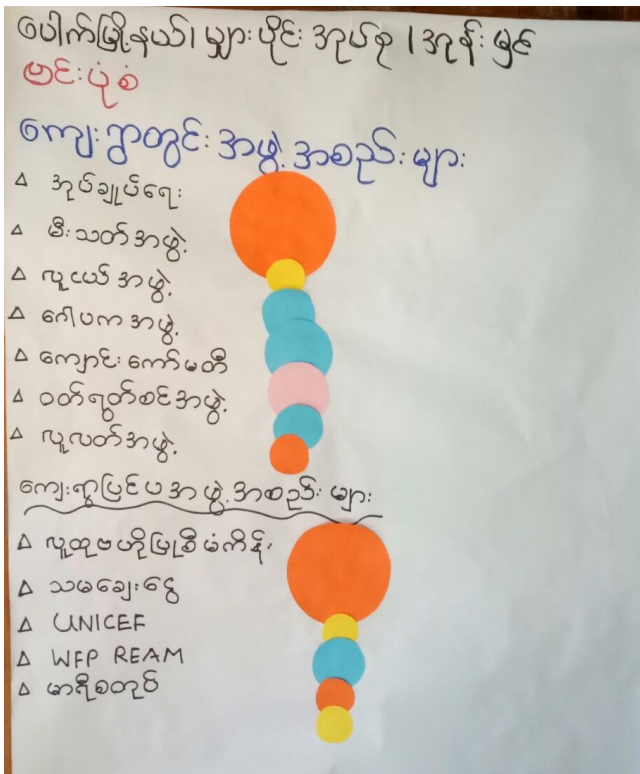 ပေါက်မြို့နယ်၊ မျှားပိုင်းအုပ်စု၊ အုန်းမြင်
ဗင်းပုံစံ
ကျေးရွာတွင်း အဖွဲ့အစည်းများ
အုပ်ချုပ်ရေး
မီးသတ်အဖွဲ့
လူငယ်အဖွဲ့
ဂေါပကအဖွဲ့
ကျောင်းကော်မတီ
ဝတ်ရွတ်စဉ်အဖွဲ့
လူလတ်အဖွဲ့
ကျေးရွာပြင်ပအဖွဲ့အစည်းများ
လူထုဗဟိုပြုစီမံကိန်း
သမချေးငွေ
UNICEF
WFP REAM
မာရီစတုပ်